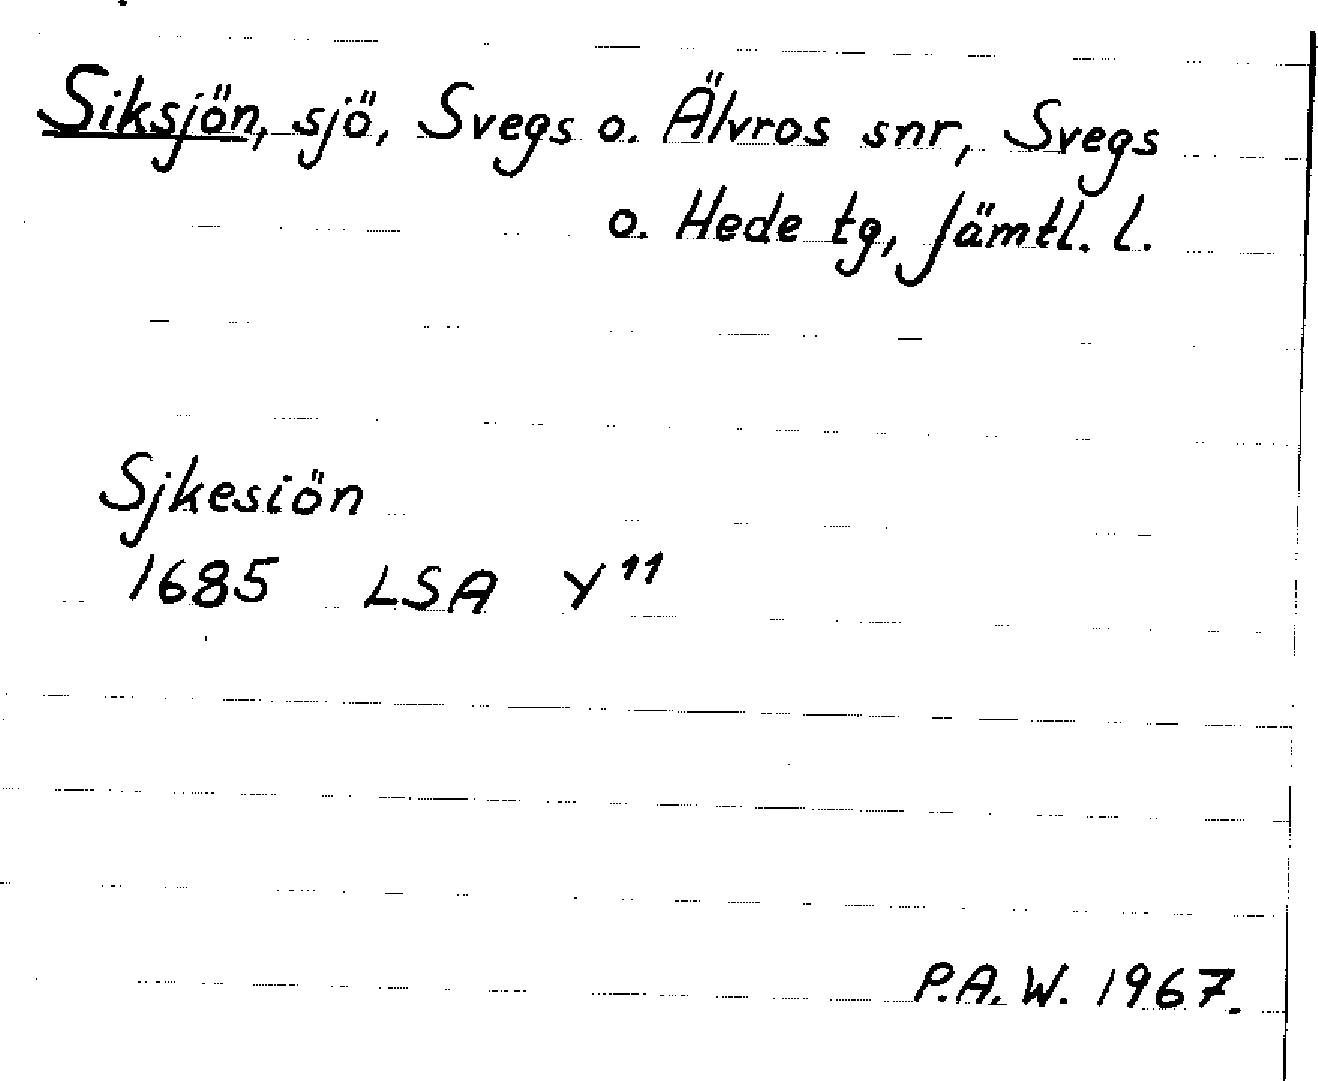 Siksjön, sjö, Svegs o. Älvros snr, Svegs
o. Hede tg, Jämtl. l.
Sjkesiön
1685 LSA Y¹¹
P.A.W. 1967.